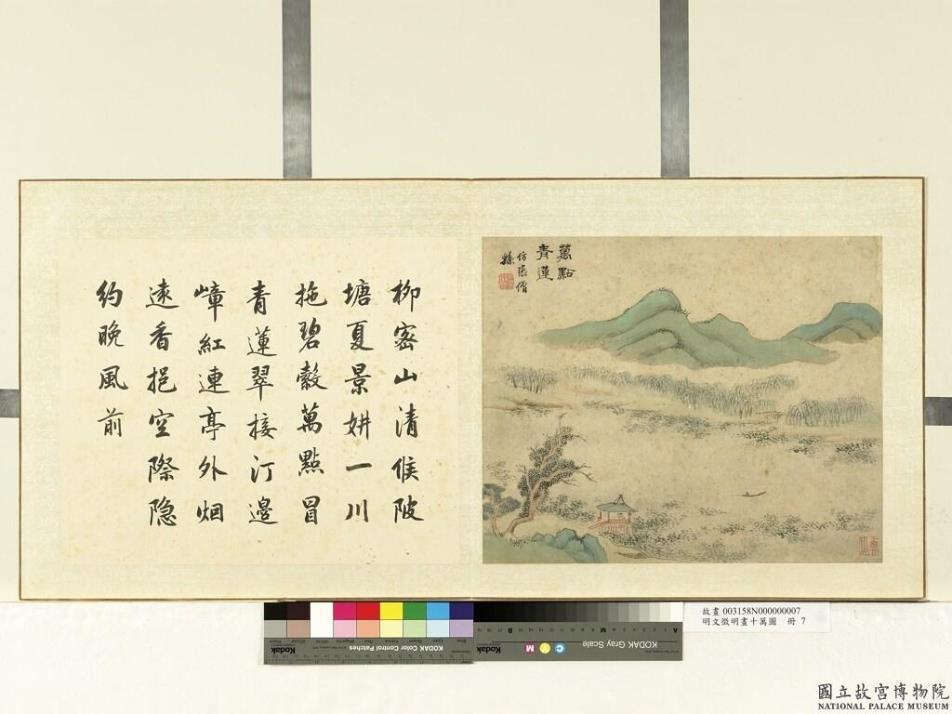 萬點
青蓮
仿張僧
繇
柳密山清候陂
塘夏景妍一川
拖碧縠萬點冒
青蓮翠接汀邊
嶂紅連亭外烟
遠香挹空際隐
約晚風前
KODAK Color Control Patches
Kodak
KODAK Gray Scale
C Y M
Kodak
A
M
B
故畫 003158N000000007
明文徵明畫十萬圖 冊 7
國立故宮博物院
NATIONAL PALACE MUSEUM